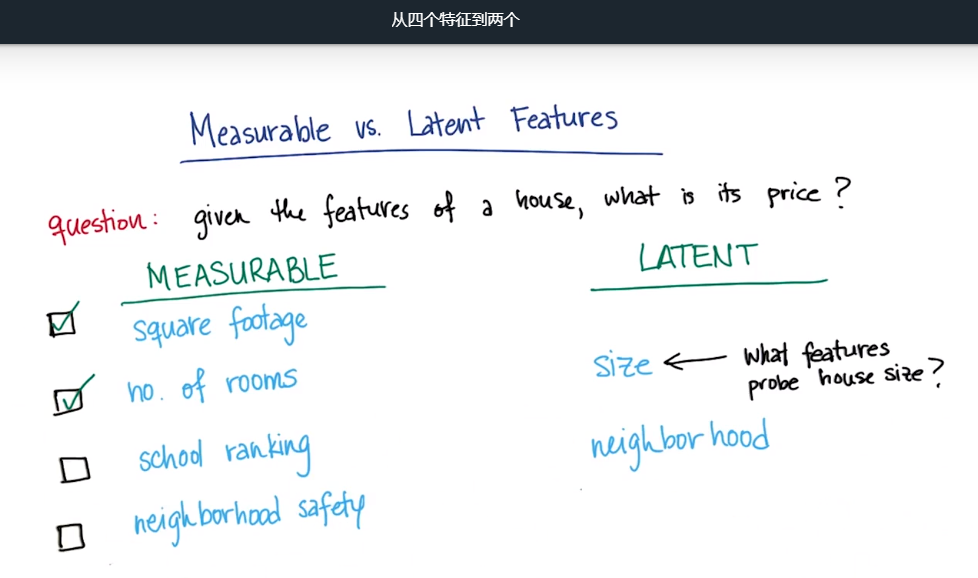 从四个特征到两个
Measurable vs. Latent Features
question: given the features of a house, what is its price?
MEASURABLE
square footage
no. of rooms
school ranking
neighborhood safety
LATENT
size ← what features
probe house size?
neighborhood